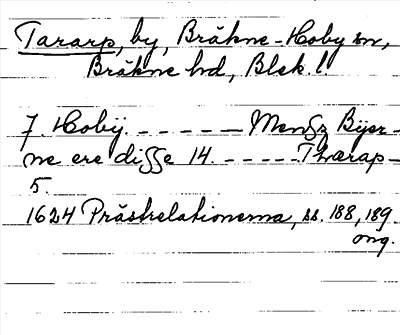 Tararp, by, Bräkne-Hoby sn,
Bräkne hd, Blek. l.
7 Hobÿ. - - - - - - Mensz Bÿer-
ne ere disse 14. - - - - - Tharap-
5.
1624 Prästrelationerna, ss. 188, 189
orig.